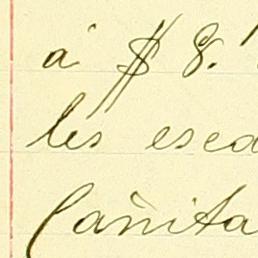 á $ 8.
les esca
Cañita